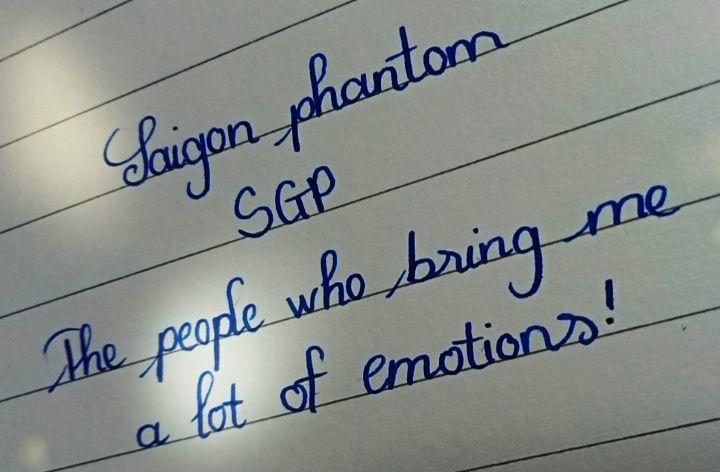 Saigon phantom
SGP
The people who bring me
a lot of emotions!